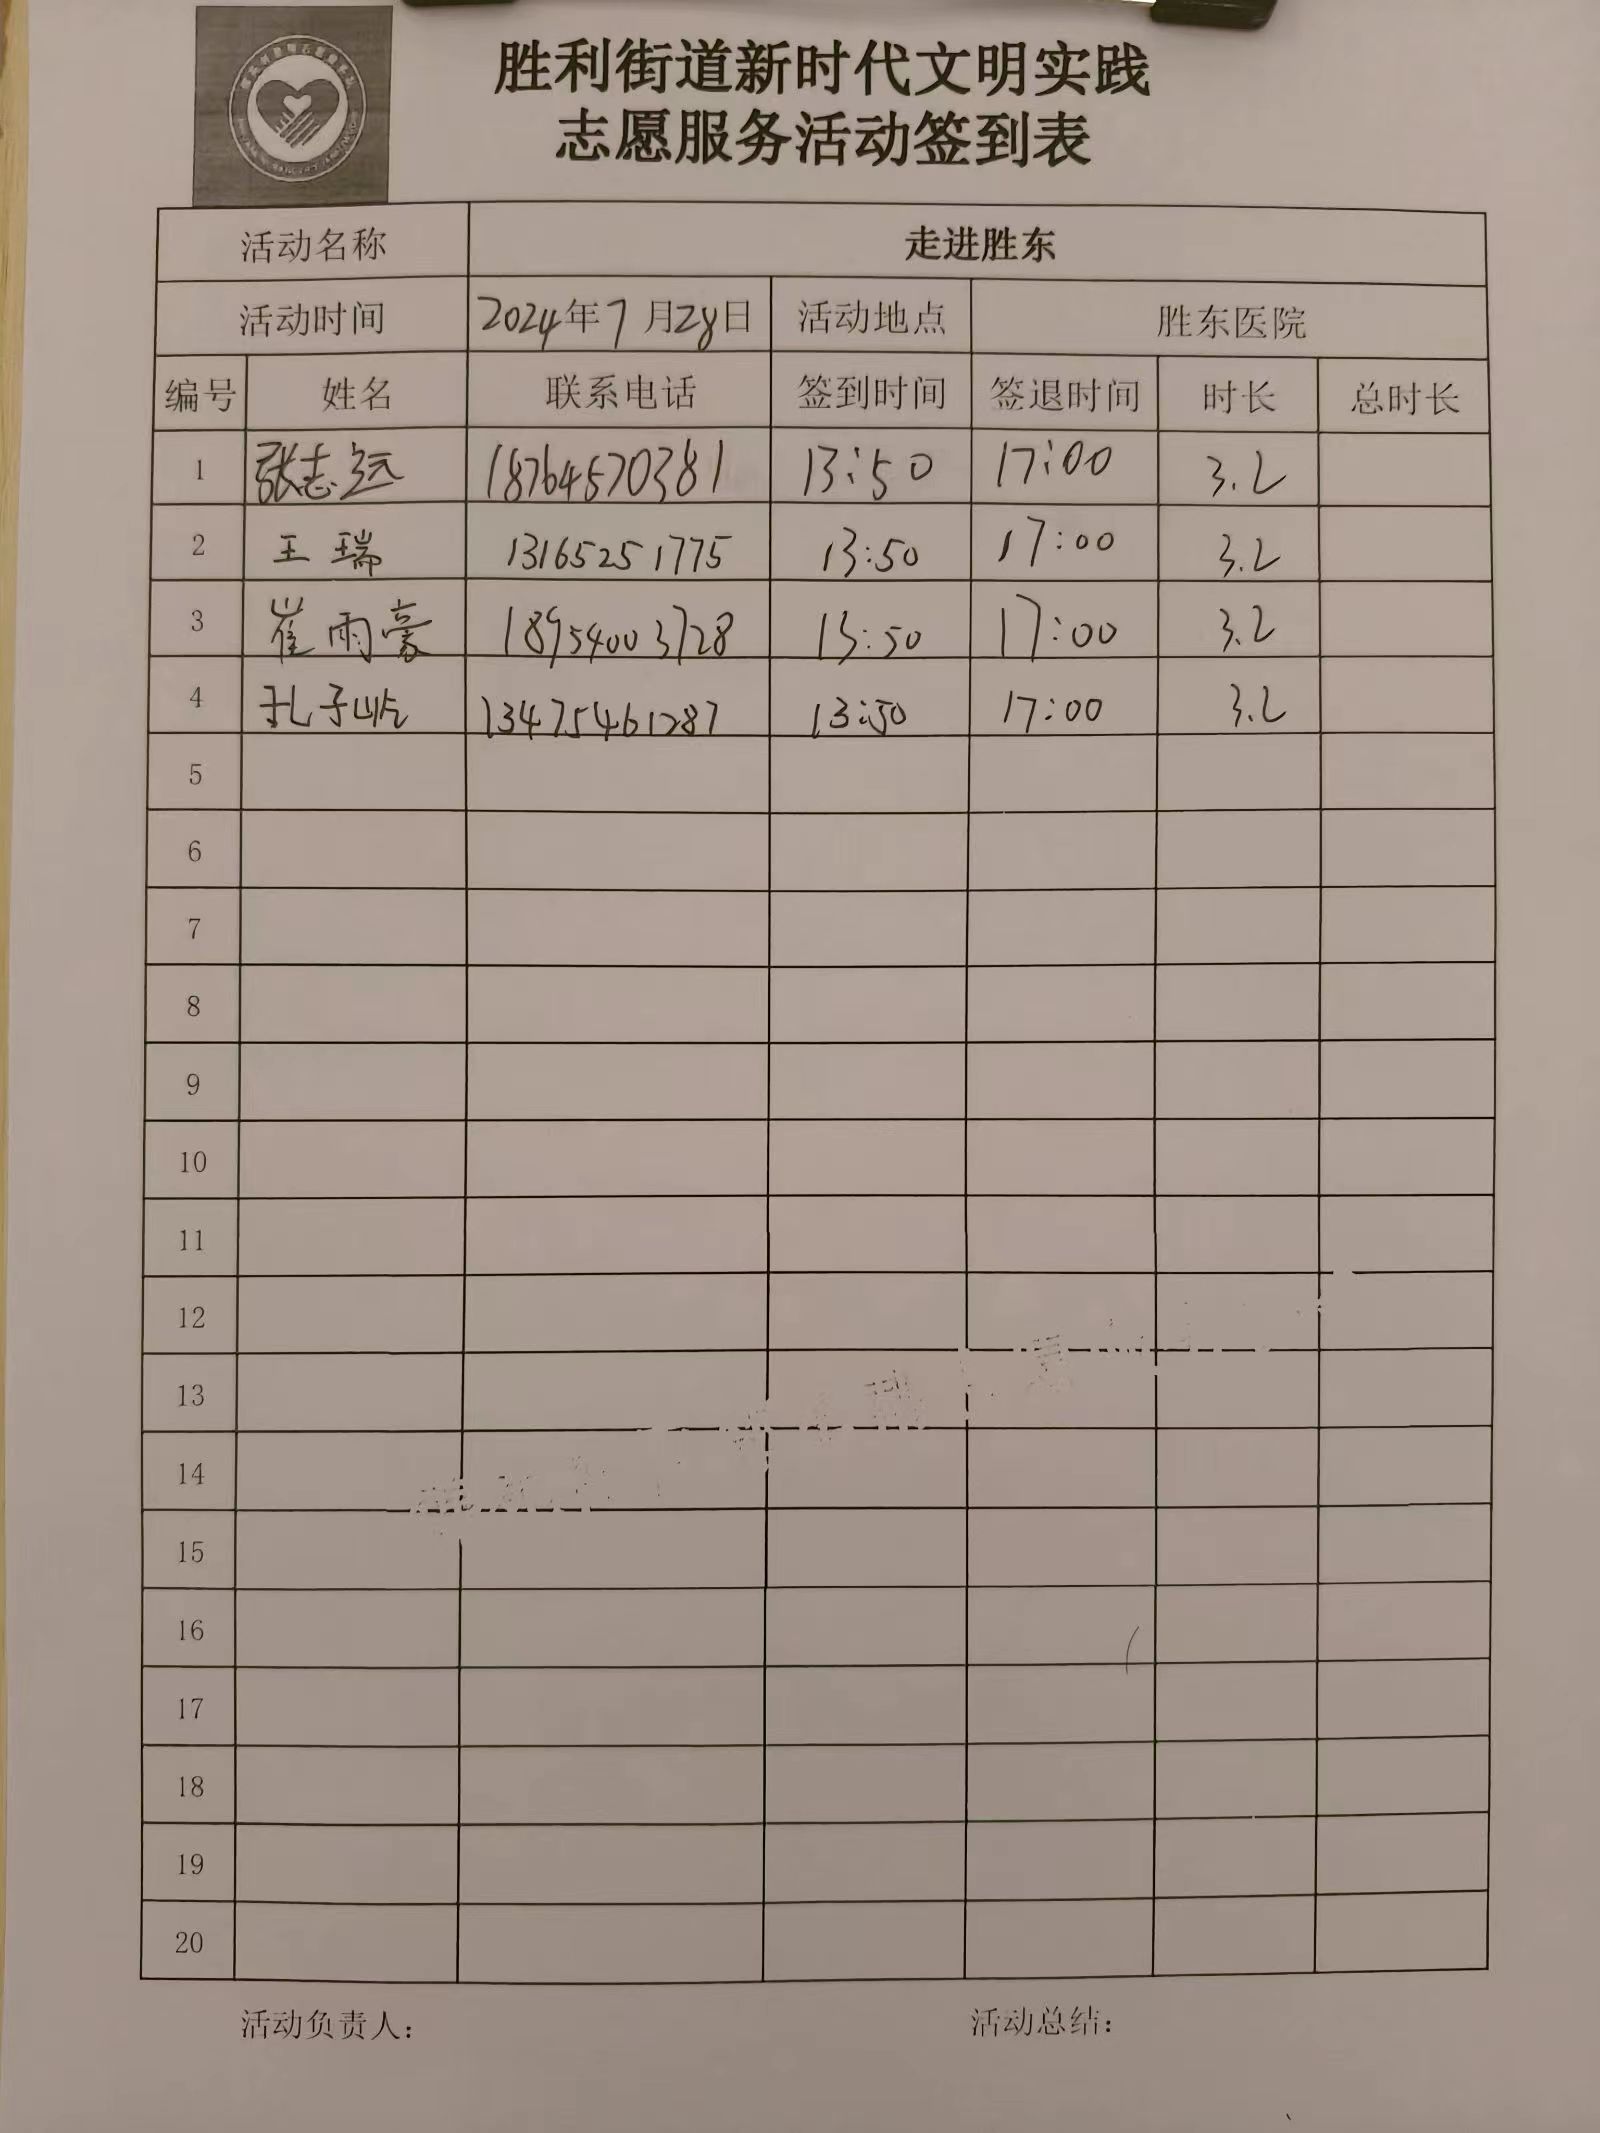 胜利街道新时代文明实践
志愿服务活动签到表
活动名称 走进胜东
活动时间 2024年7月28日 活动地点 胜东医院
编号 姓名 联系电话 签到时间 签退时间 时长 总时长
1 张志远 18764570381 13:50 17:00 3.2
2 王瑞 13165251775 13:50 17:00 3.2
3 崔雨豪 18954003728 13:50 17:00 3.2
4 孔子屹 13475461287 13:50 17:00 3.2
5
6
7
8
9
10
11
12
13
14
15
16
17
18
19
20
活动负责人: 活动总结: